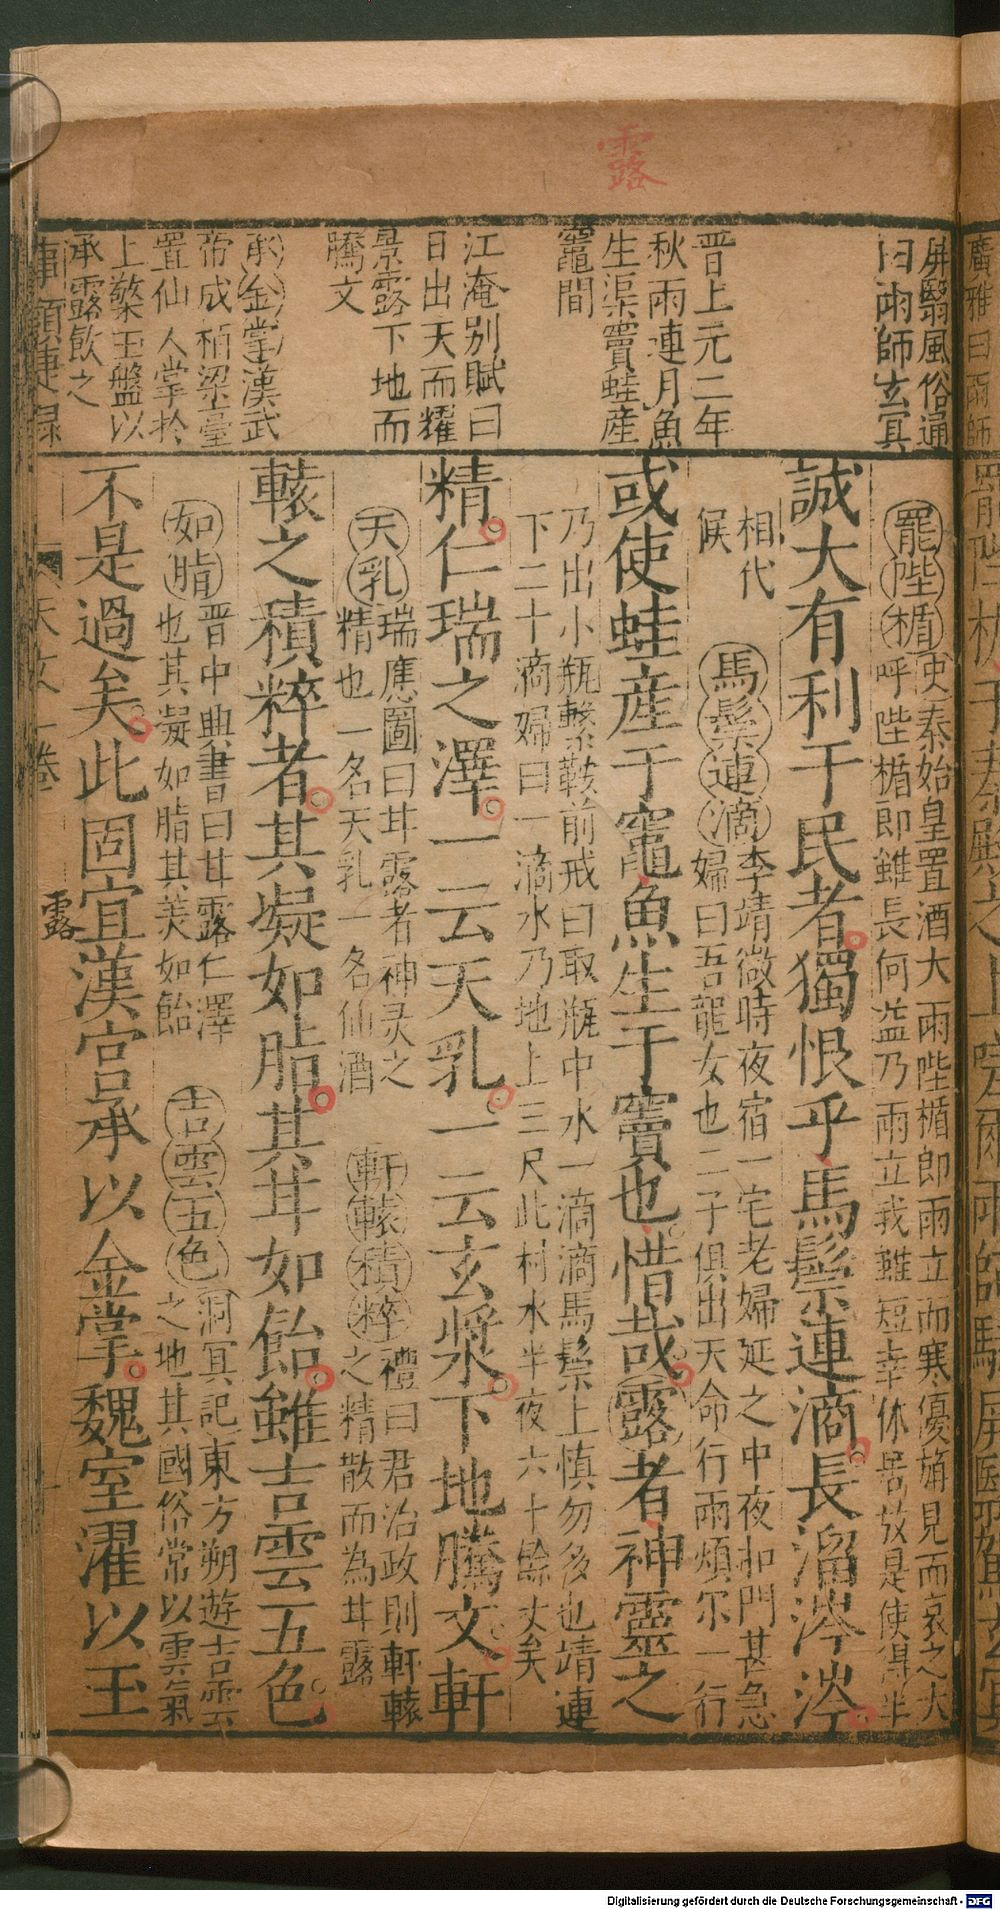 露
屏翳風俗通
曰雨師玄冥
晋上元二年
秋雨連月魚
生渠竇蛙産
竈間
江淹別賦曰
日出天而耀
景露下地而
騰文
承金掌漢武
帝成栢梁臺
置仙人掌於
上擎玉盤以
承露飲之
罷陛楯史秦始皇置酒大雨陛楯郎雨立而寒優旃見而哀之大
呼陛楯郎雖長何益乃雨立我雖短幸休居故是使得半
相代
誠大有利于民者獨恨乎馬鬃連滴長溜涔涔
馬鬃連滴李靖微時夜宿一宅老婦延之中夜扣門甚急
婦曰吾龍女也二子俱出天命行雨煩尔一行
候
或使蛙産于竈魚生于竇也惜哉露者神靈之
乃出小瓶繫鞍前戒曰取瓶中水一滴滴馬鬃上慎勿多也靖連
下二十滴婦曰一滴水乃地上三尺此村水半夜六十餘丈矣
精仁瑞之澤一云天乳一云玄漿下地騰文軒
天乳瑞應圖曰甘露者神灵之
精也一名天乳一名仙酒
軒轅積粹禮曰君治政則軒轅
之精散而為甘露
轅之積粹者其凝如脂其甘如飴雖吉雲五色
如脂晋中興書曰甘露仁澤
也其凝如脂其美如飴
吉雲五色洞冥記東方朔遊吉雲
之地其國俗常以雲氣
不是過矣此固宜漢宮承以金掌魏室濯以玉
露
天文一卷